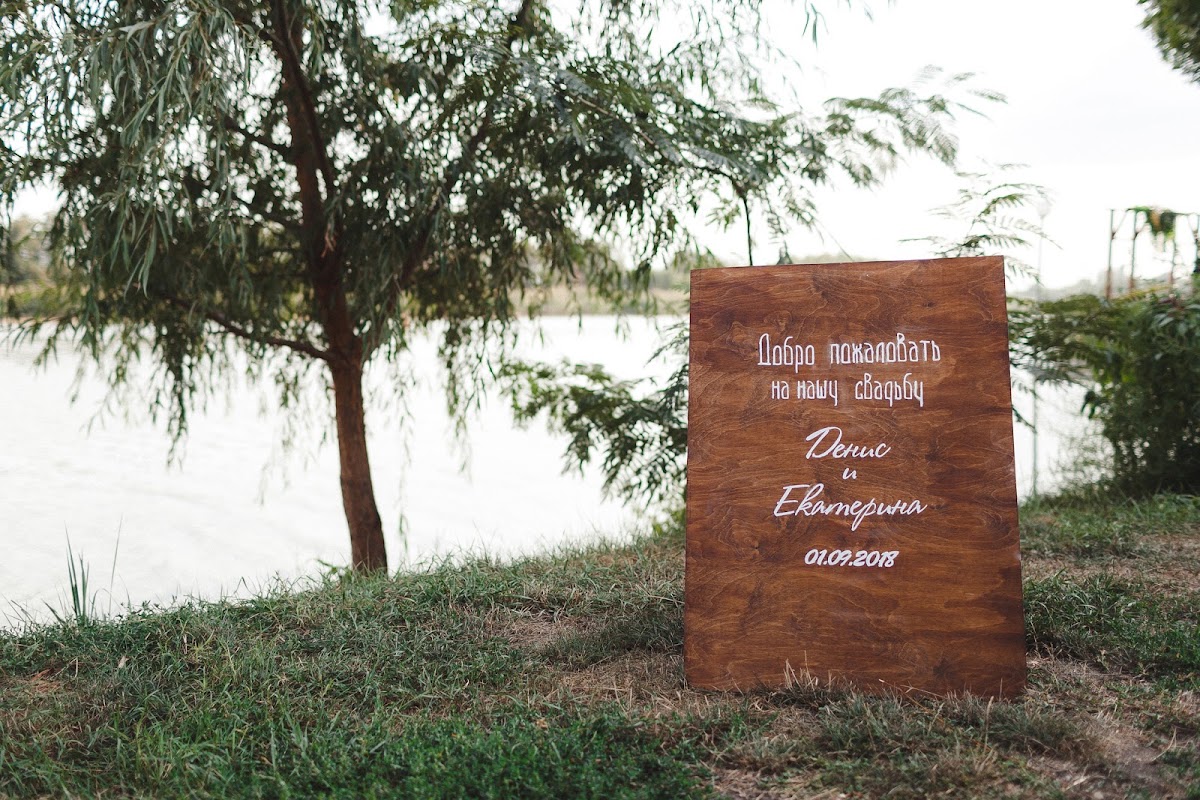 Добро пожаловать
на нашу свадьбу
Денис
и
Екатерина
01.09.2018